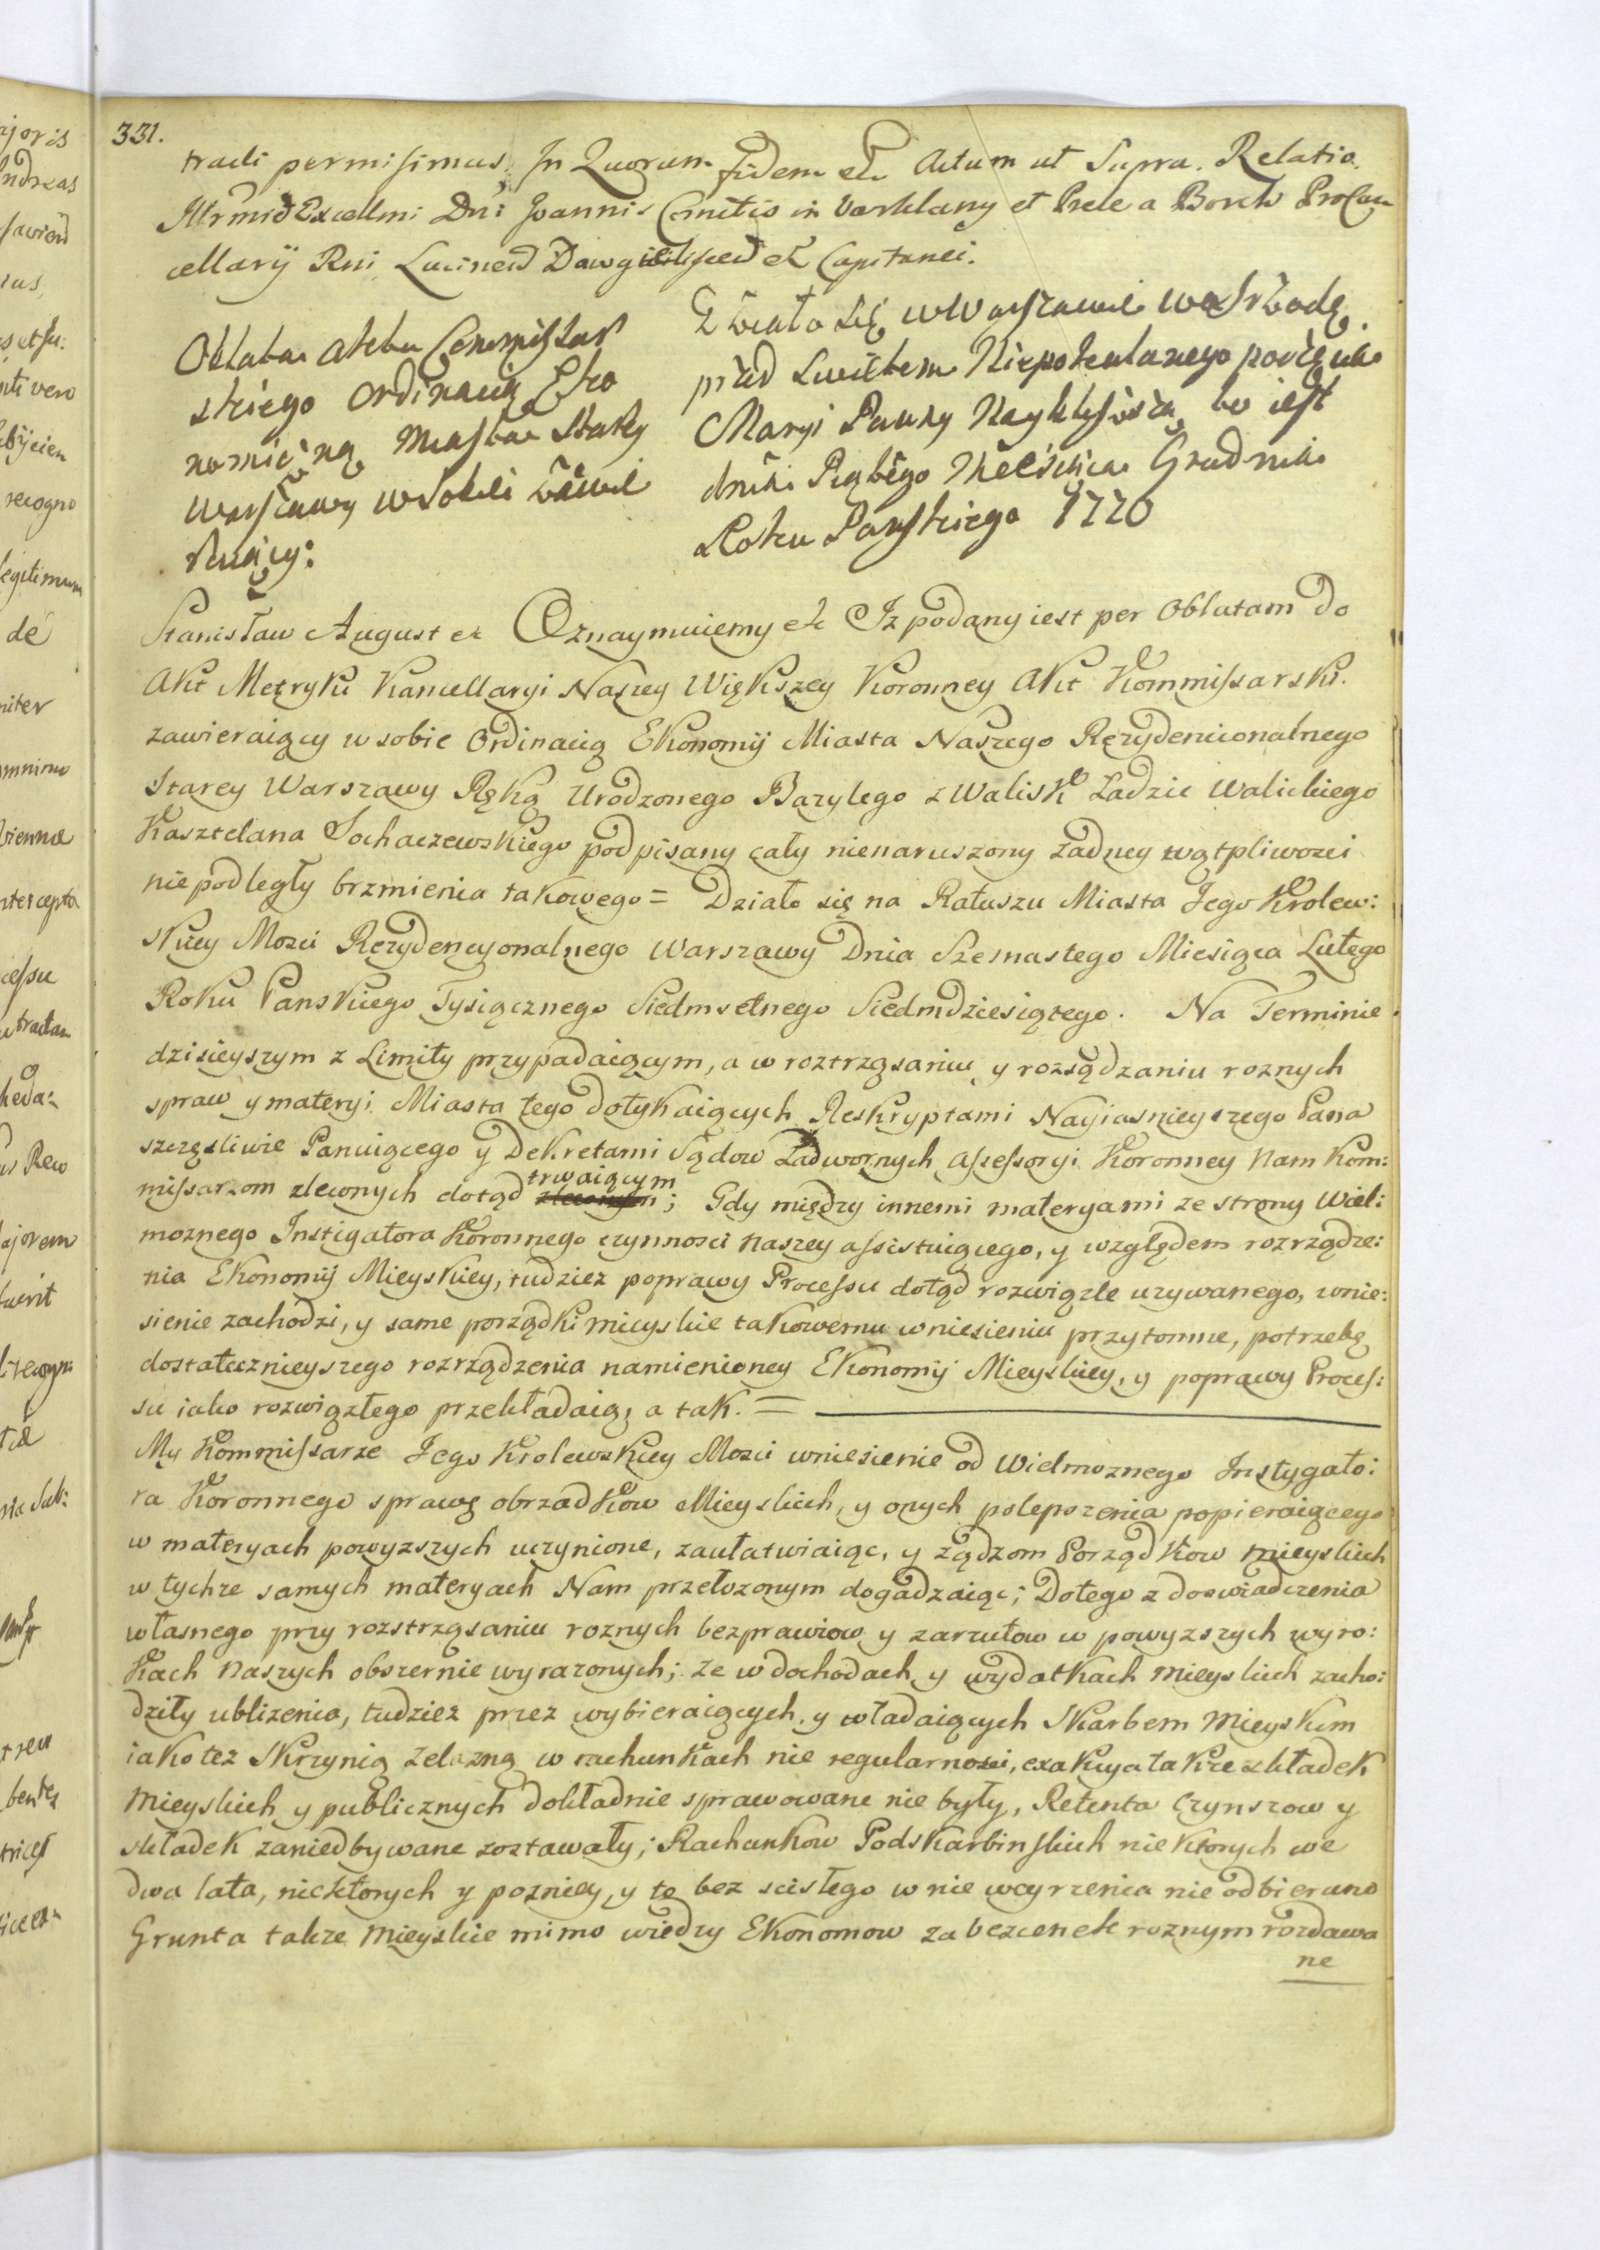 331.
tradi permisimus. In Quorum fidem etc Actum ut Supra. Relatio
Illrmi Excellmi Dni Joannis Comitis in Warklany et Prele a Borch ProCan
cellarij Rni Lucinen et Capitanei.
Oblata Aktu Commissar
skiego Ordinacią Eko
nomiczną Miasta Starey
Warszawy w Sobie zawie
raiący:
Działo się w Warszawie we Srzodę
przed Swiętem Niepokalanego poczęcia
Maryi Panny Nayswiętszey to iest
dnia Piątego Miesiąca Grudnia
Roku Pańskiego 1770
Stanisław August etc Oznaymuiemy etc Iz podany iest per Oblatam do
Akt Metryki Kancellaryi Naszey Większey Koronney Akt Kommissarski
zawieraiący w sobie Ordinacią Ekonomij Miasta Naszego Rezydencionalnego
Starey Warszawy Ręką Urodzonego Bazylego z Walisk Ładzic Walickiego
Kasztelana Sochaczewskiego podpisany cały nienaruszony zadney wątpliwosci
niepodległy brzmienia takowego = Działo się na Ratuszu Miasta Jego Krolew:
skiey Mosci Rezydencyonalnego Warszawy Dnia Szesnastego Miesiąca Lutego
Roku Panskiego Tysiącznego Siedmsetnego Siedmdziesiątego. Na Terminie
dzisieyszym z Limity przypadaiącym, a w roztrząsaniu y rozsądzaniu roznych
spraw y materyi Miasta tego dotykaiących Reskryptami Nayiasnieyszego Pana
szczęsliwie Panuiącego y Dekretami Sądow Zadwornych Assessoryi Koronney Nam Kom:
missarzom zleconych dotąd trwaiącym; Gdy między innemi materyami ze strony Wiel:
moznego Instigatora Koronnego czynnosci naszey assistuiącego, y względem rozrządze:
nia Ekonomij Mieyskiey, tudziez poprawy Processu dotąd rozwiązle uzywanego, wnie:
sienie zachodzi, y same porządki mieyskie takowemu wniesieniu przytomne, potrzebę
dostatecznieyszego rozrządzenia namienioney Ekonomij Mieyskiey, y poprawy Proces:
su iako rozwiązłego przekładaią, a tak. =
My Kommissarze Jego Krolewskiey Mosci wniesienie od Wielmoznego Instygato:
ra Koronnego sprawę obrzadkow Mieyskich, y onych polepszenia popieraiącego
w materyach powyzszych uczynione, zaułatwiaiąc, y ządzom Porządkow mieyskich
w tychze samych materyach Nam przełozonym dogadzaiąc; Dotego z doswiadczenia
własnego przy rozstrząsaniu roznych bezprawiow y zarzutow w powyzszych wyro:
kach naszych obszernie wyrazonych; ze w dochodach y wydatkach mieyskich zacho:
dziły ublizenia, tudziez przez wybieraiących y władaiących Skarbem mieyskim
iako tez Skrzynią zelazną w rachunkach nie regularnosci, exakcya takze składek
mieyskich y publicznych dokładnie sprawowane nie były, Retenta Czynszow y
składek zaniedbywane zostawały; Rachunkow Podskarbinskich niektorych we
dwa lata, niektorych y pozniey, y te bez scisłego w nie weyrzenia nie odbierano
Grunta takze mieyskie mimo wiedzy Ekonomow za bezcenek roznym rozdawa
ne